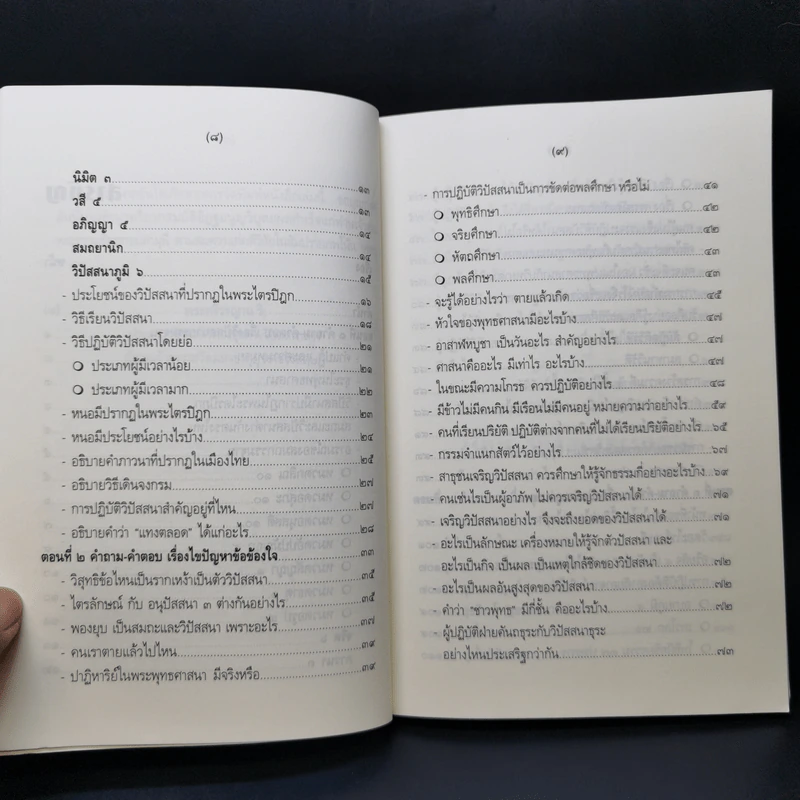 (๘)
นิมิต ๓ ๑๓
วสี ๕ ๑๓
อภิญญา ๕ ๑๔
สมถยานิก ๑๔
วิปัสสนาภูมิ ๖ ๑๕
- ประโยชน์ของวิปัสสนาที่ปรากฏในพระไตรปิฎก ๑๖
- วิธีเรียนวิปัสสนา ๑๘
- วิธีปฏิบัติวิปัสสนาโดยย่อ ๒๑
❍ ประเภทผู้มีเวลาน้อย ๒๑
❍ ประเภทผู้มีเวลามาก ๒๒
- หนอมีปรากฏในพระไตรปิฎก ๒๓
- หนอมีประโยชน์อย่างไรบ้าง ๒๔
- อธิบายคำภาวนาที่ปรากฏในเมืองไทย ๒๕
- อธิบายวิธีเดินจงกรม ๒๗
- การปฏิบัติวิปัสสนาสำคัญอยู่ที่ไหน ๒๗
- อธิบายคำว่า "แทงตลอด" ได้แก่อะไร ๒๘
ตอนที่ ๒ คำถาม-คำตอบ เรื่องไขปัญหาข้อข้องใจ ๓๓
- วิสุทธิข้อไหนเป็นรากเหง้าเป็นตัววิปัสสนา ๓๕
- ไตรลักษณ์ กับ อนุปัสสนา ๓ ต่างกันอย่างไร ๓๕
- พองยุบ เป็นสมถะและวิปัสสนา เพราะอะไร ๓๗
- คนเราตายแล้วไปไหน ๓๙
- ปาฏิหาริย์ในพระพุทธศาสนา มีจริงหรือ ๓๙
(๙)
- การปฏิบัติวิปัสสนาเป็นการขัดต่อพลศึกษา หรือไม่ ๔๑
❍ พุทธิศึกษา ๔๒
❍ จริยศึกษา ๔๒
❍ หัตถศึกษา ๔๓
❍ พลศึกษา ๔๓
- จะรู้ได้อย่างไรว่า ตายแล้วเกิด ๔๕
- หัวใจของพุทธศาสนามีอะไรบ้าง ๔๗
- อาสาฬหบูชา เป็นวันอะไร สำคัญอย่างไร ๔๗
- ศาสนาคืออะไร มีเท่าไร อะไรบ้าง ๔๗
- ในขณะมีความโกรธ ควรปฏิบัติอย่างไร ๔๘
- มีข้าวไม่มีคนกิน มีเรือนไม่มีคนอยู่ หมายความว่าอย่างไร ๕๙
- คนที่เรียนปริยัติ ปฏิบัติต่างจากคนที่ไม่ได้เรียนปริยัติอย่างไร ๖๕
- กรรมจำแนกสัตว์ไว้อย่างไร ๖๗
- สาธุชนเจริญวิปัสสนา ควรศึกษาให้รู้จักธรรมกี่อย่างอะไรบ้าง ๖๙
- คนเช่นไรเป็นผู้อาภัพ ไม่ควรเจริญวิปัสสนาได้ ๗๑
- เจริญวิปัสสนาอย่างไร จึงจะถึงยอดของวิปัสสนาได้ ๗๑
- อะไรเป็นลักษณะ เครื่องหมายให้รู้จักตัววิปัสสนา และ
อะไรเป็นกิจ เป็นผล เป็นเหตุใกล้ชิดของวิปัสสนา ๗๒
- อะไรเป็นผลอันสูงสุดของวิปัสสนา ๗๒
- คำว่า "ชาวพุทธ" มีกี่ชั้น คืออะไรบ้าง ๗๒
ผู้ปฏิบัติฝ่ายคันถธุระกับวิปัสสนาธุระ
อย่างไหนประเสริฐกว่ากัน ๗๓